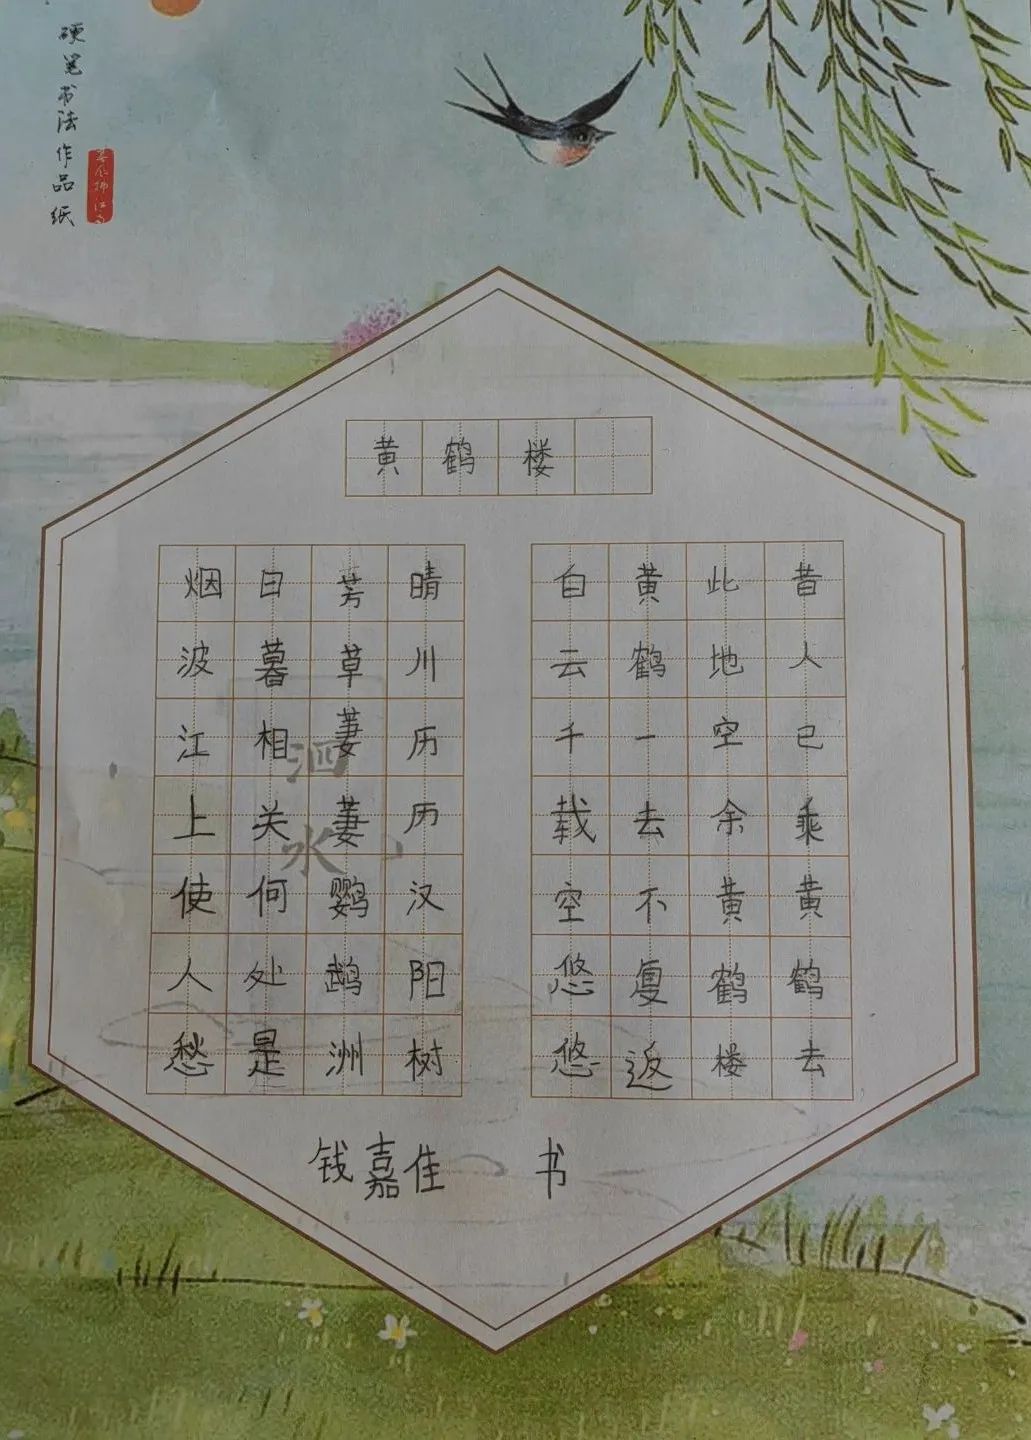 硬笔书法作品纸
黄鹤楼
昔人已乘黄鹤去
此地空余黄鹤楼
黄鹤一去不复返
自云千载空悠悠
晴川历历汉阳树
芳草萋萋鹦鹉洲
日暮相关何处是
烟波江上使人愁
泗水
钱嘉佳 书